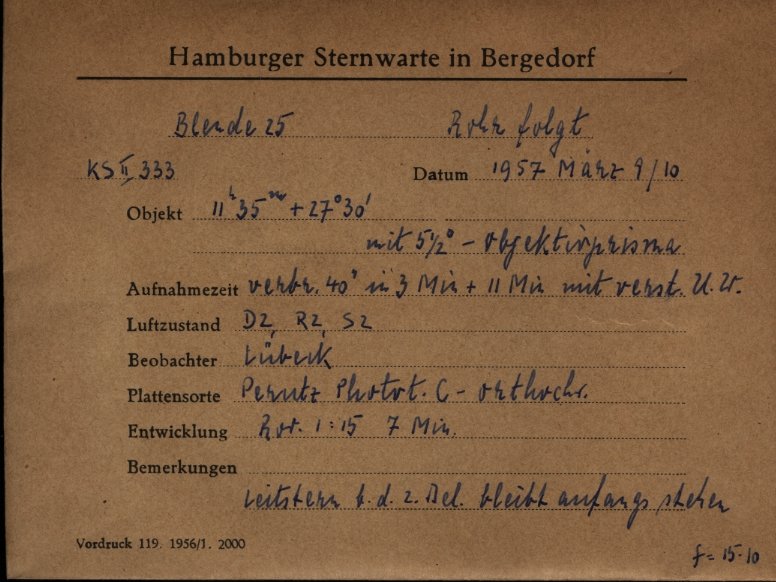 Hamburger Sternwarte in Bergedorf
Blende 25 Rohr folgt
KS II 333 Datum 1957 März 9/10
Objekt 11h 35m + 27° 30'
mit 5½° - Objektivprisma
Aufnahmezeit verbr. 40" in 3 Min + 11 Min mit verst. U.W.
Luftzustand D2, R2, S2
Beobachter Lübeck
Plattensorte Perutz Photot. C - orthochr.
Entwicklung Ror. 1:15 7 Min.
Bemerkungen
Leitstern b. d. 2. Bel. bleibt anfangs stehen
Vordruck 119. 1956/1. 2000
f = 15-10